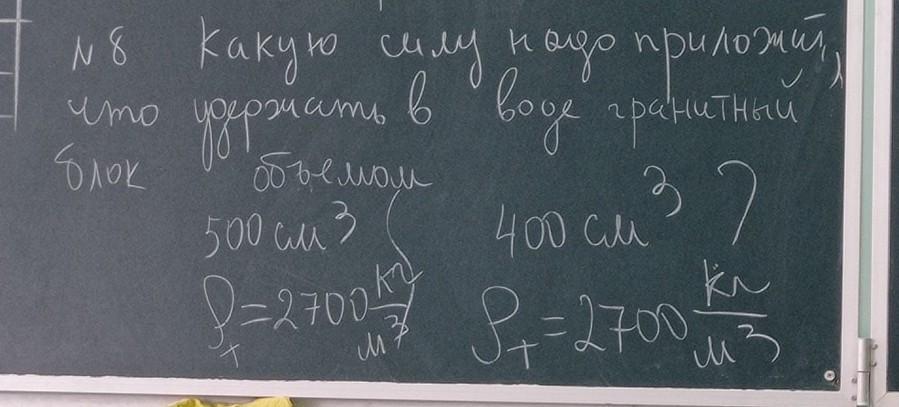 N8 Какую силу надо приложить,
что удержать в воде гранитный
блок объемом
500 см³ ( 400 см³ )
ρт = 2700 кг/м³ ρт = 2700 кг/м³